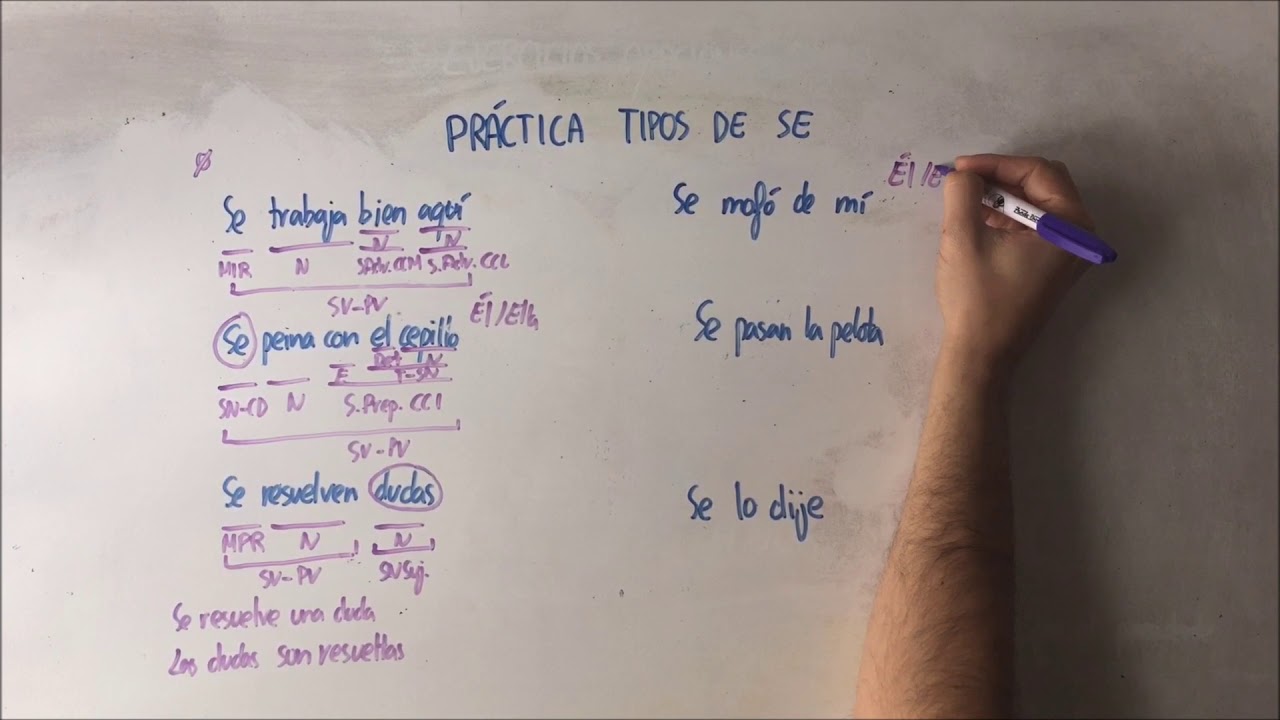 PRÁCTICA TIPOS DE SE
Ø
Se trabaja bien aquí
N N
MIR N S.Adv.CCM S.Adv.CCL
SV-PV
Él/Ella
Se peina con el cepillo
Det N
E T-SN
SN-CD N S.Prep.CCI
SV-PV
Se resuelven dudas
MPR N N
SV-PV SNSuj.
Se resuelve una duda
Las dudas son resueltas
Él/E
Se mofó de mí
Se pasan la pelota
Se lo dije